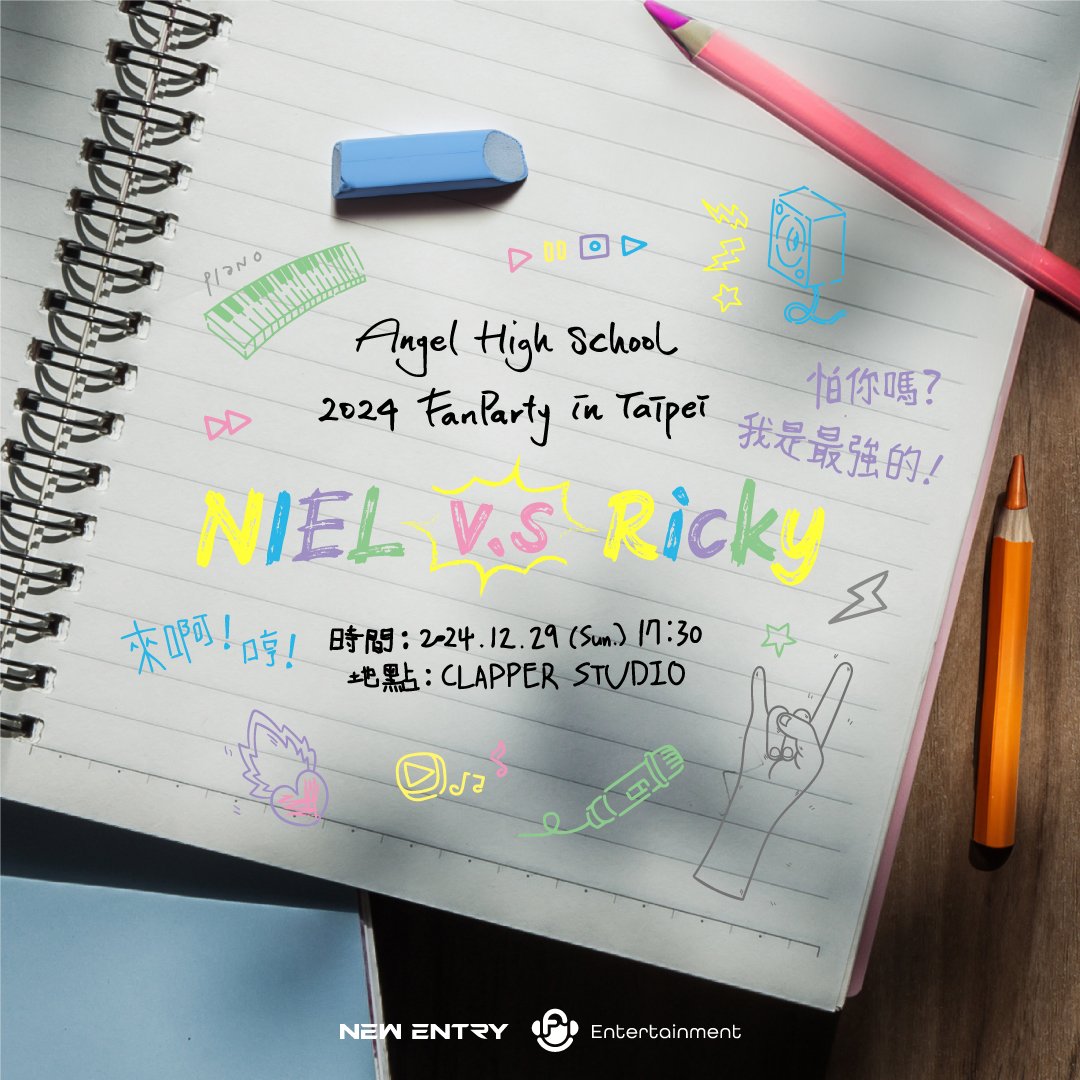 PIANO
Angel High School
2024 FanParty in Taipei
怕你嗎?
我是最強的!
NIEL V.S Ricky
來啊! 哼!
時間: 2024.12.29 (Sun.) 17:30
地點: CLAPPER STUDIO
NEW ENTRY
Entertainment